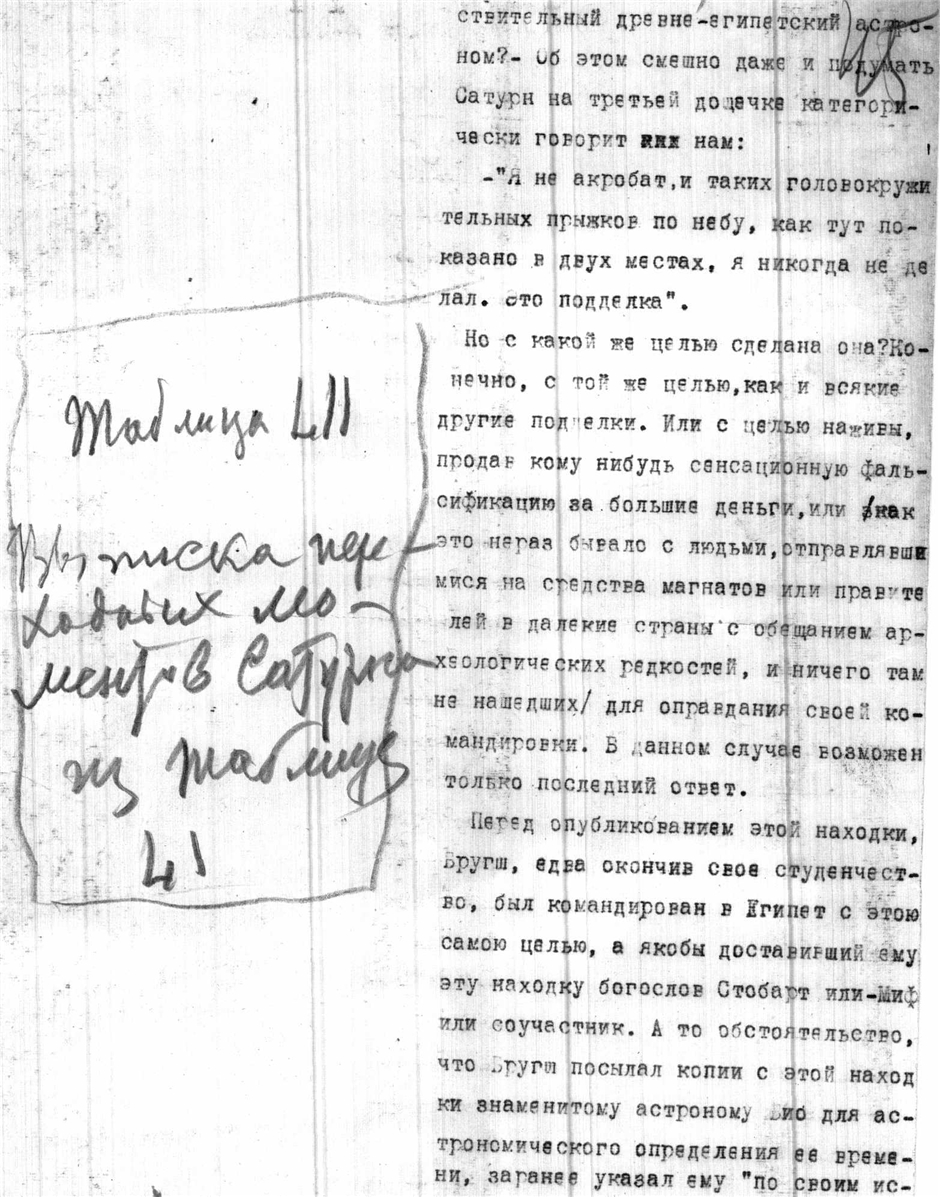 ствительный древне-египетский астро-
ном?- Об этом смешно даже и подумать
Сатурн на третьей дощечке категори-
чески говорит нам:
-"Я не акробат,и таких головокружи
тельных прыжков по небу, как тут по-
казано в двух местах, я никогда не де
лал. Это подделка".
Но с какой же целью сделана она?Ко-
нечно, с той же целью,как и всякие
другие подделки. Или с целью наживы,
продав кому нибудь сенсационную фаль-
сификацию за большие деньги,или /как
это нераз бывало с людьми,отправлявши
мися на средства магнатов или правите
лей в далекие страны с обещанием ар-
хеологических редкостей, и ничего там
не нашедших/ для оправдания своей ко-
мандировки. В данном случае возможен
только последний ответ.
Перед опубликованием этой находки,
Бругш, едва окончив свое студенчест-
во, был командирован в Египет с этою
самою целью, а якобы доставивший ему
эту находку богослов Стобарт или-Миф
или соучастник. А то обстоятельство,
что Бругш посылал копии с этой наход
ки знаменитому астроному Био для ас-
трономического определения ее време-
ни, заранее указал ему "по своим ис-
Таблица LII
Выписка пере-
ходных мо-
ментов Сатурна
из таблицы
LI